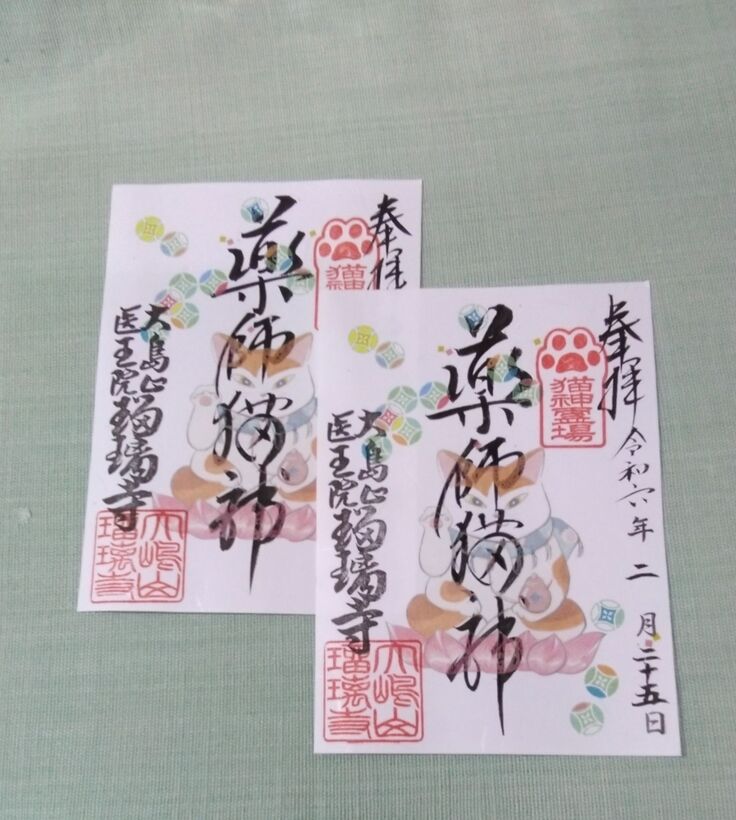 奉拝
猫神
薬師猫神
大島山
医王院瑠璃寺
大嶋山
瑠璃寺
奉拝 令和六年二月二十五日
猫神霊場
薬師猫神
大島山
医王院瑠璃寺
大嶋山
瑠璃寺